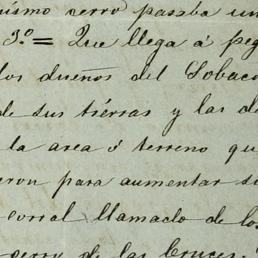 mismo cerro pasaba un
3.º = Que llega á peg
los dueños del Sobaco
de sus tierras y las de
la area ó terreno qu
eron para aumentar su
corral llamado de los
cerro de las Cruces.